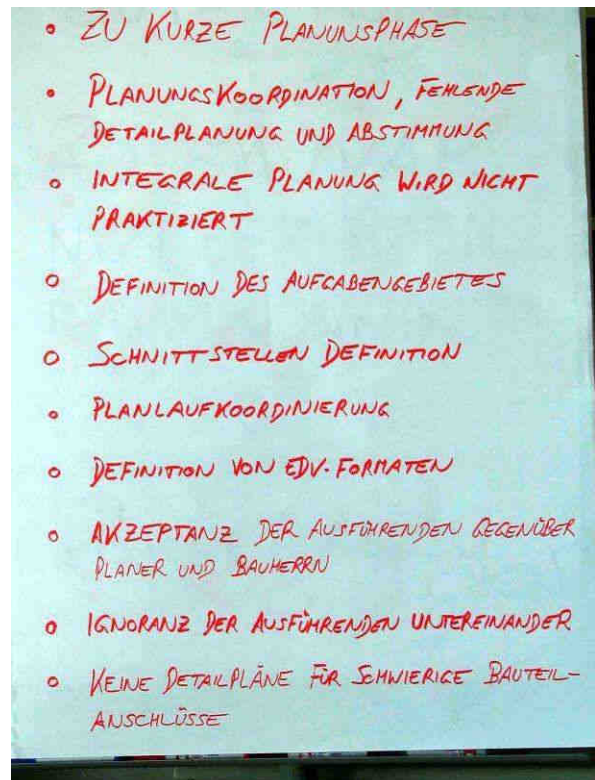 • ZU KURZE PLANUNSPHASE
• PLANUNGSKOORDINATION, FEHLENDE
DETAILPLANUNG UND ABSTIMMUNG
• INTEGRALE PLANUNG WIRD NICHT
PRAKTIZIERT
• DEFINITION DES AUFGABENGEBIETES
• SCHNITTSTELLEN DEFINITION
• PLANLAUFKOORDINIERUNG
• DEFINITION VON EDV-FORMATEN
• AKZEPTANZ DER AUSFÜHRENDEN GEGENÜBER
PLANER UND BAUHERRN
• IGNORANZ DER AUSFÜHRENDEN UNTEREINANDER
• KEINE DETAILPLÄNE FÜR SCHWIERIGE BAUTEIL-
ANSCHLÜSSE